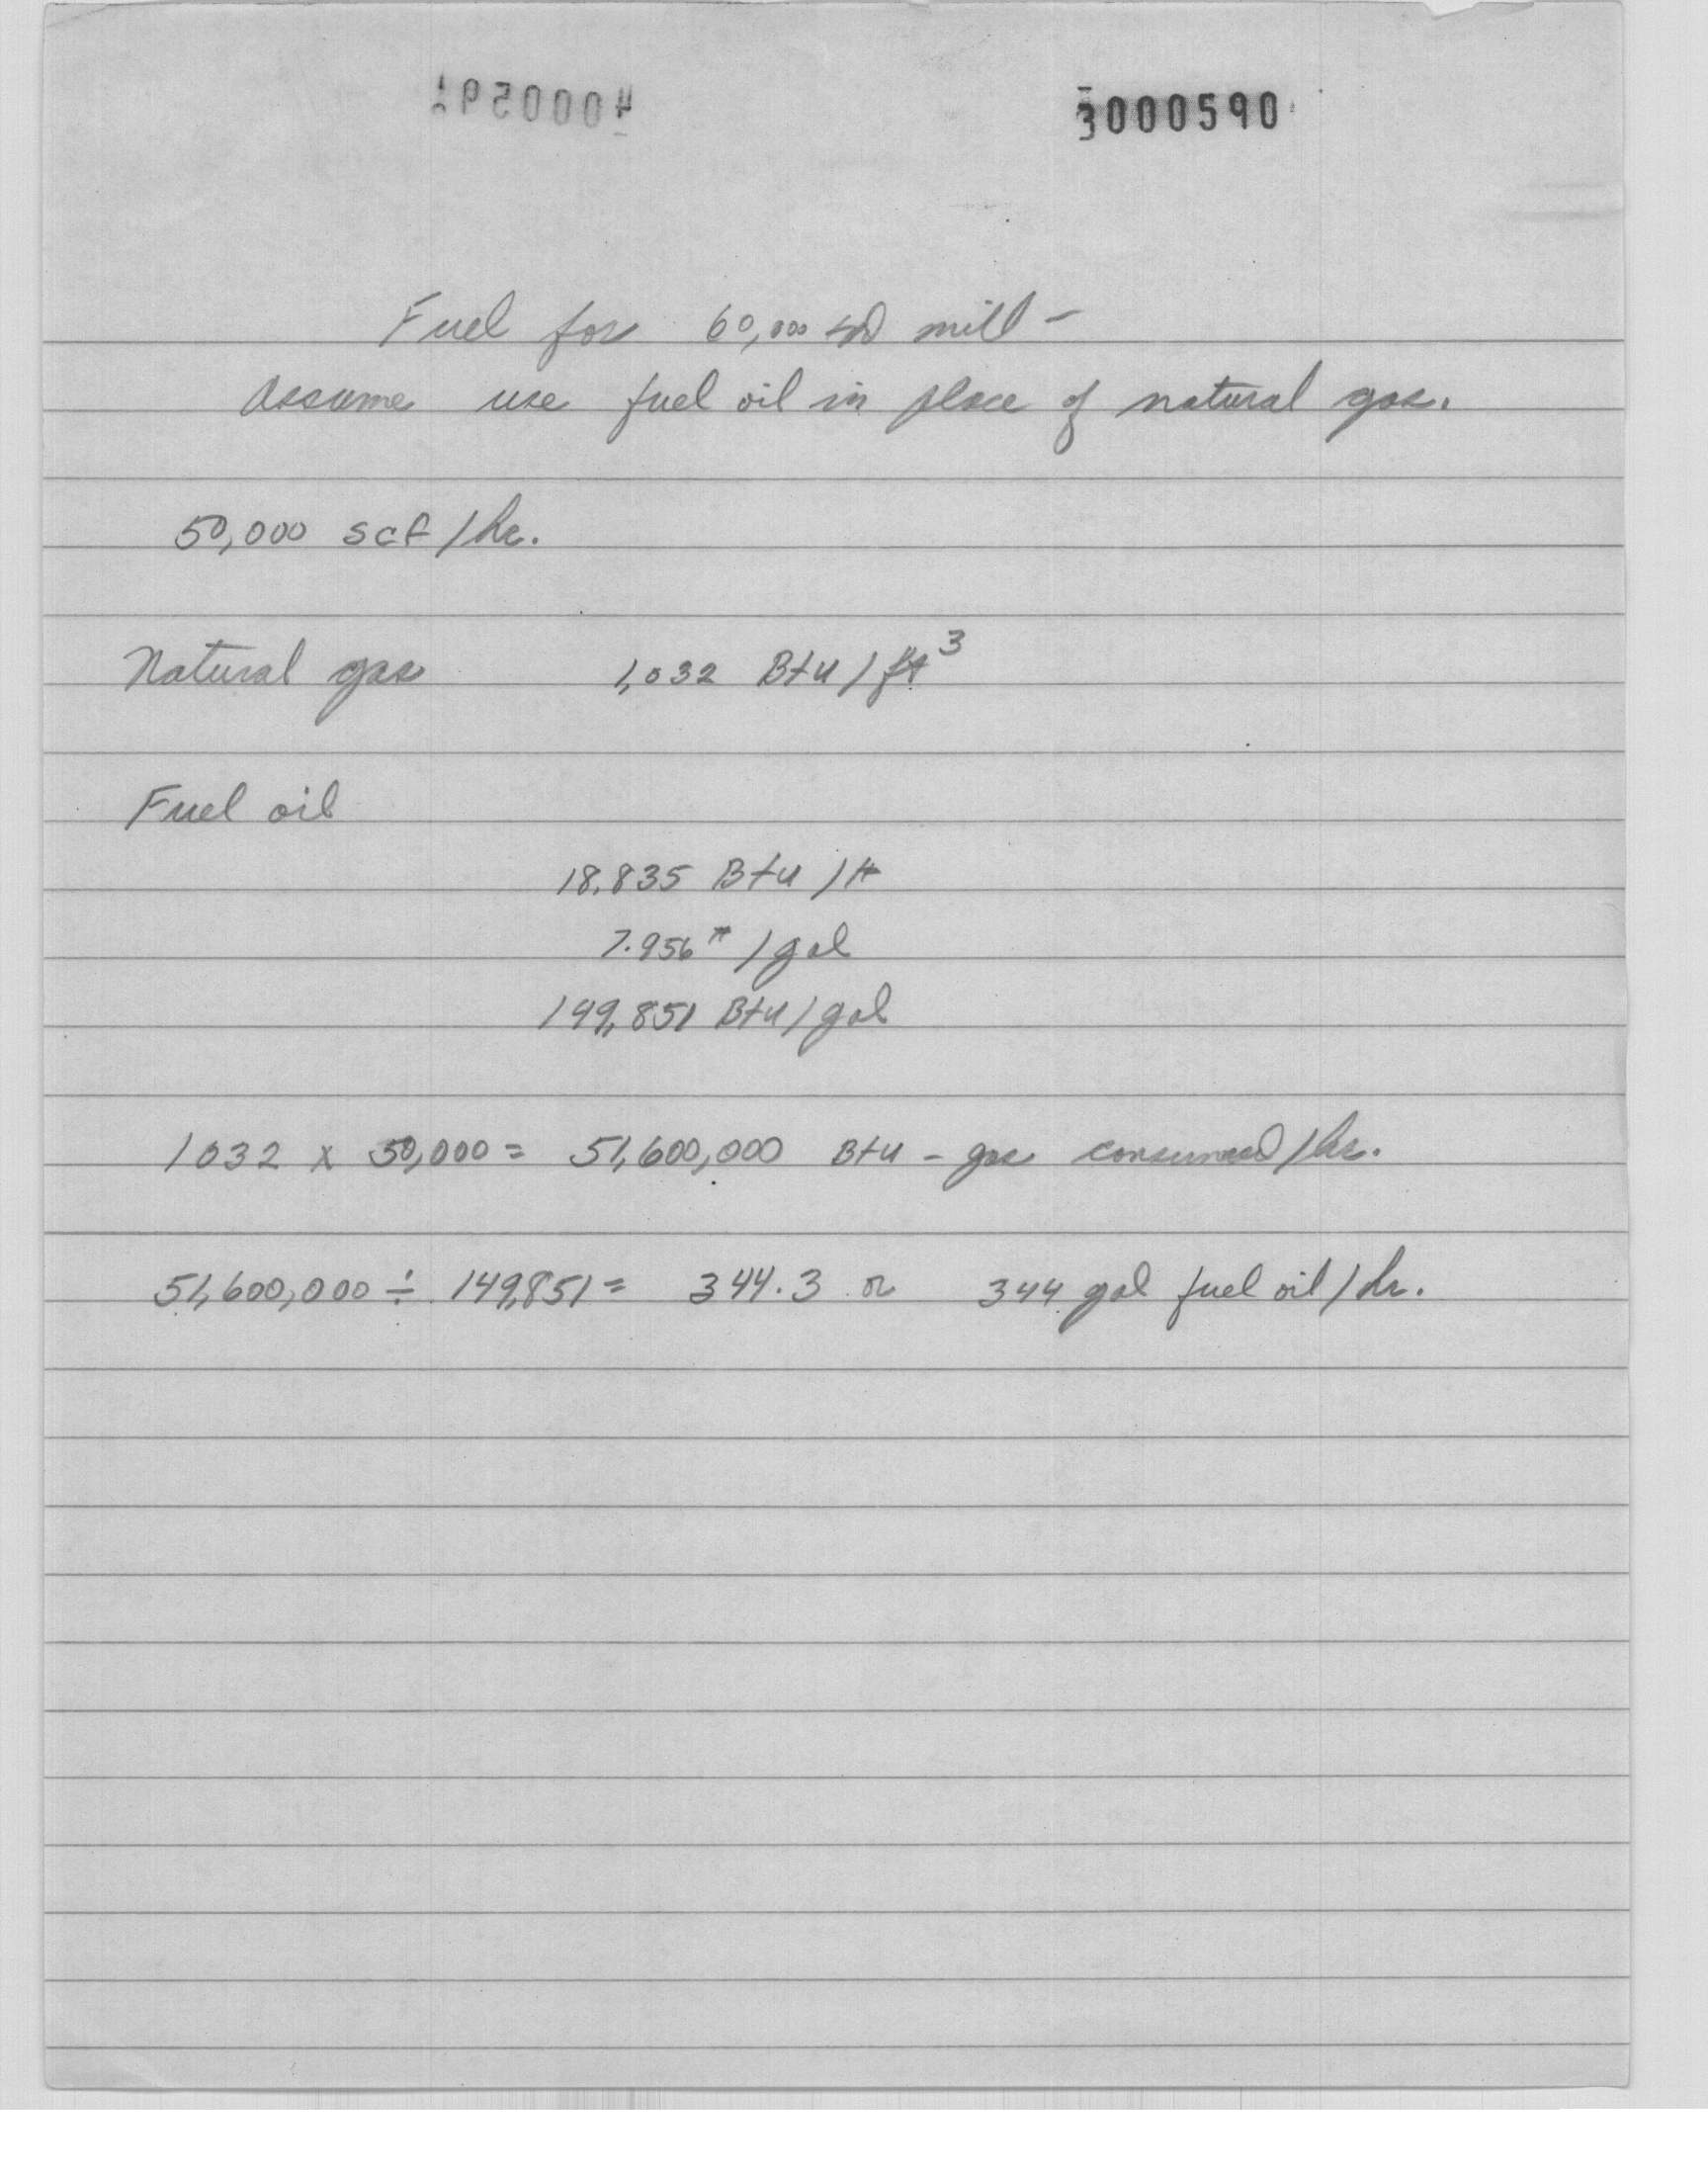 3000590
Fuel for 60,000 mill -
Assume use fuel oil in place of natural gas.
50,000 scf/hr.
Natural gas 1,032 Btu/ft³
Fuel oil
18,835 Btu/#
7.956#/gal
149,851 Btu/gal
1032 x 50,000 = 51,600,000 Btu - gas consumed/hr.
51,600,000 ÷ 149,851 = 344.3 or 344 gal fuel oil/hr.